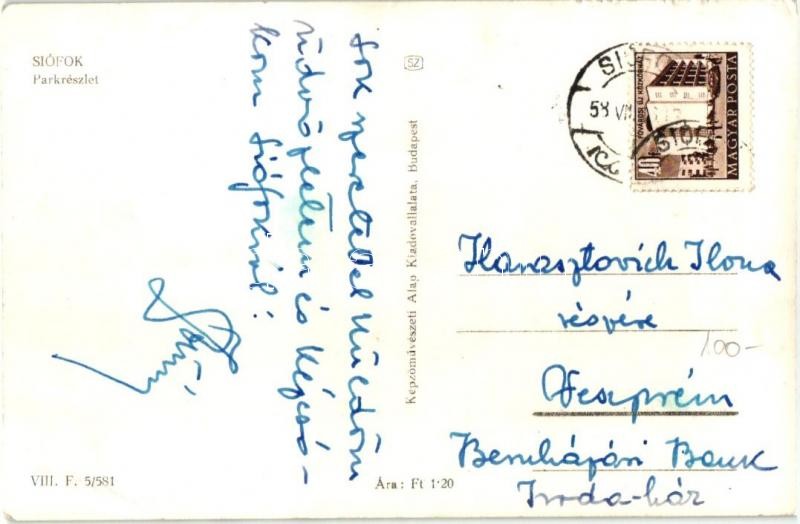 SIÓFOK
Parkrészlet
Sok szeretettel Küldöm
üdvözletem és Képcsó-
kom Siófokról!
VIII. F. 5/581
SZ
Képzőművészeti Alap Kiadóvállalata, Budapest
Ára: Ft 1·20
SIÓFOK
58 VII
FŐVÁROSI ÚJ KÖZKÓRHÁZ
MAGYAR POSTA
40f
SIÓF
Harasztovich Ilona
részére
100-
Veszprém
Beruházási Bank
Iroda-ház